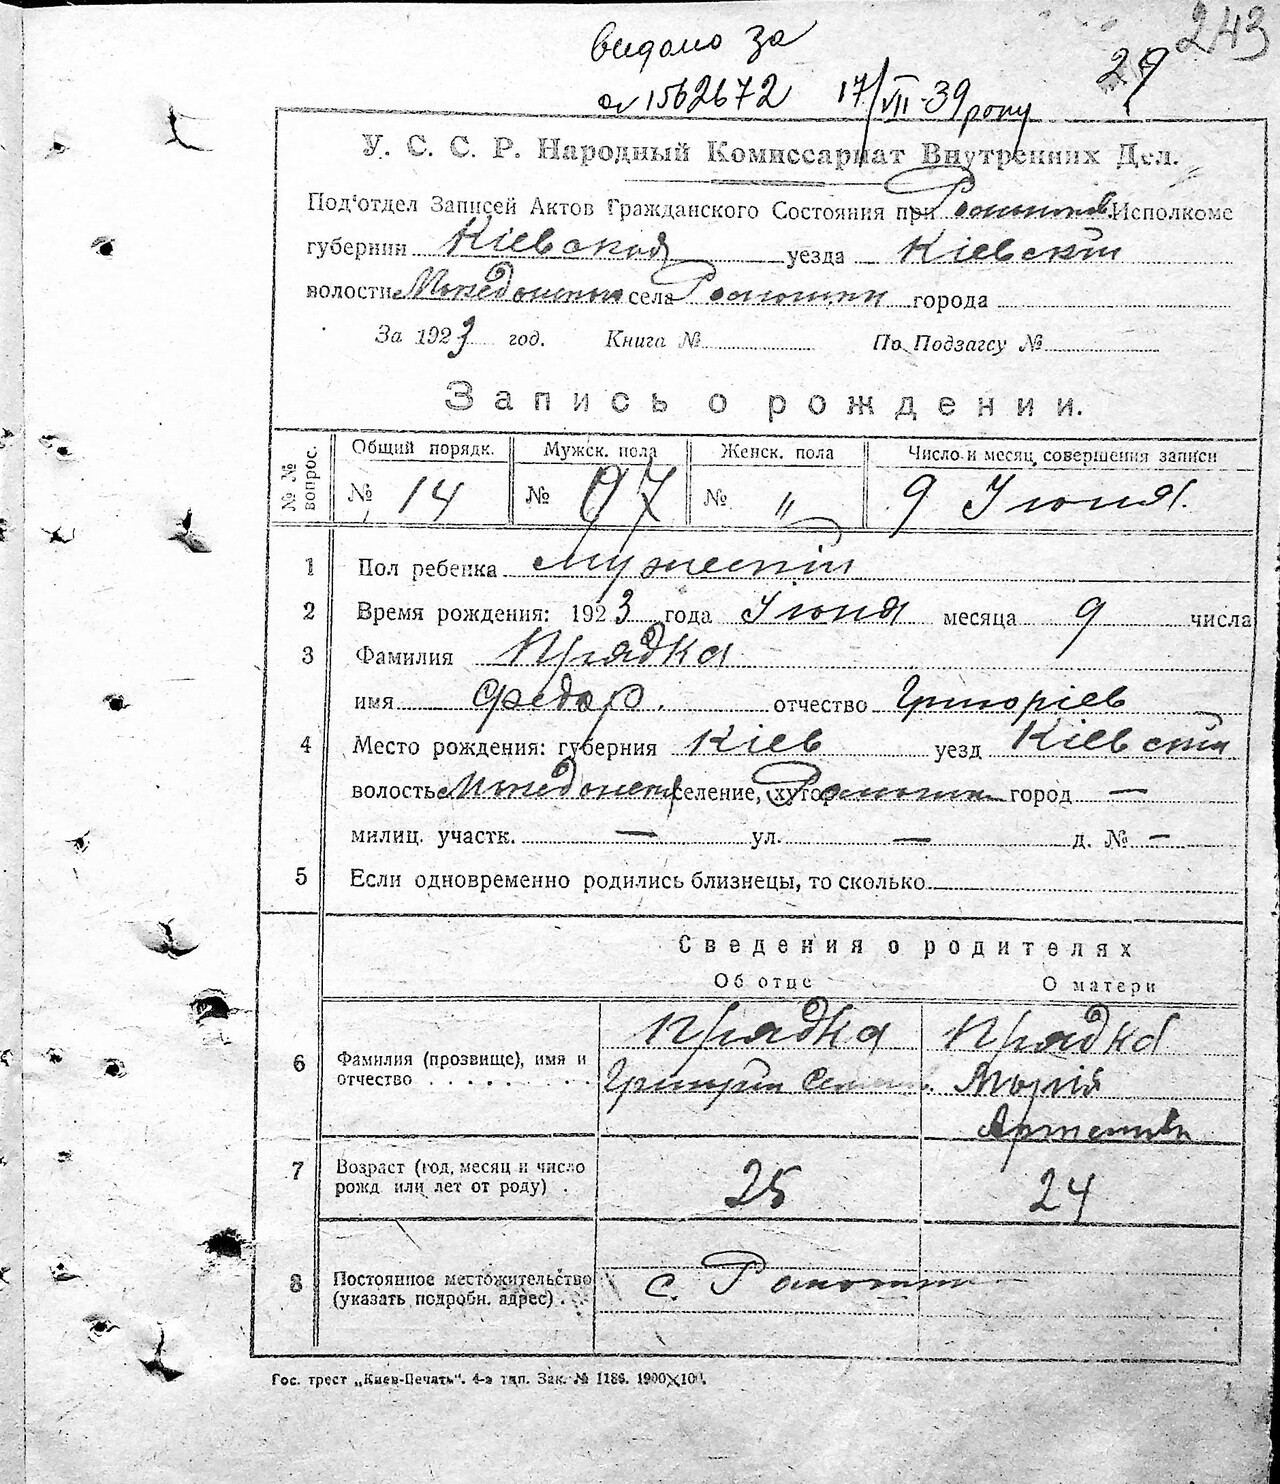 243
видано за
29
1562672 17/VII-39 року
У. С. С. Р. Народный Комиссариат Внутренних Дел.
Под'отдел Записей Актов Гражданского Состояния при Исполкоме
губернии Кіевская уезда Кіевскій
волости села города
За 1923 год. Книга № По Подзагсу №
Запись о рождении.
№ № вопрос. Общий порядк. Мужск. пола Женск. пола Число и месяц совершения записи
№ 14 № 97 № " 9 Июня.
1 Пол ребенка Мужескій
2 Время рождения: 1923 года Июня месяца 9 числа
3 Фамилия Прядка
имя Федор. отчество Григоріев
4 Место рождения: губерния Кіев уезд Кіевскій
волость селение, хутор город —
милиц. участк. — ул. — д. № —
5 Если одновременно родились близнецы, то сколько
Сведения о родителях
Об отце О матери
6 Фамилия (прозвище), имя и отчество Прядка Прядка
Григорій Марія
7 Возраст (год, месяц и число рожд или лет от роду) 25 24
8 Постоянное местожительство (указать подробн. адрес) с.
Гос. трест „Киев-Печать“. 4-я тип. Зак. № 1186. 1900×100.